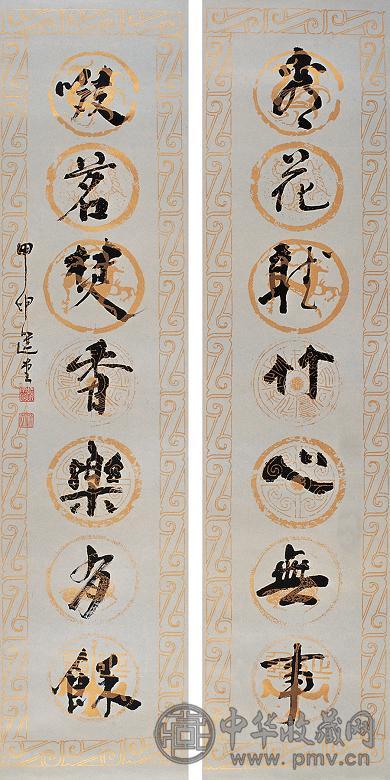 看花聽竹心無事
啜茗焚香樂有餘
甲申選堂
中华收藏网
www.pmv.cn